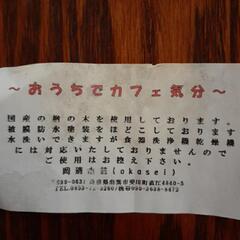 ～おうちでカフェ気分～
国産の栓の木を使用しております。
被膜防水塗装をほどこしております
水洗いできますが食器洗浄機乾燥機
には対応いたしておりませんので
ご使用はお控え下さい。
(okasei)